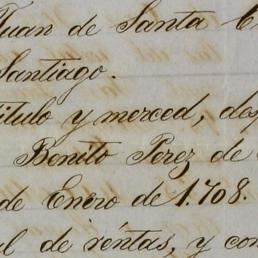 Juan de Santa C
Santiago.
itulo y merced, des
Benito Perez de
de Enero de 1.708.
l de réntas, y con